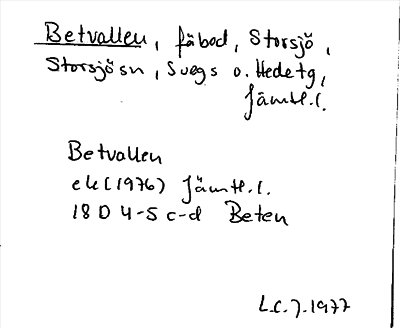 Betvallen, fäbod, Storsjö,
Storsjö sn, Svegs o. Hede tg,
Jämtl. l.
Betvallen
ek (1976) Jämtl. l.
18 D 4-5 c-d Beten
L.C.J. 1977